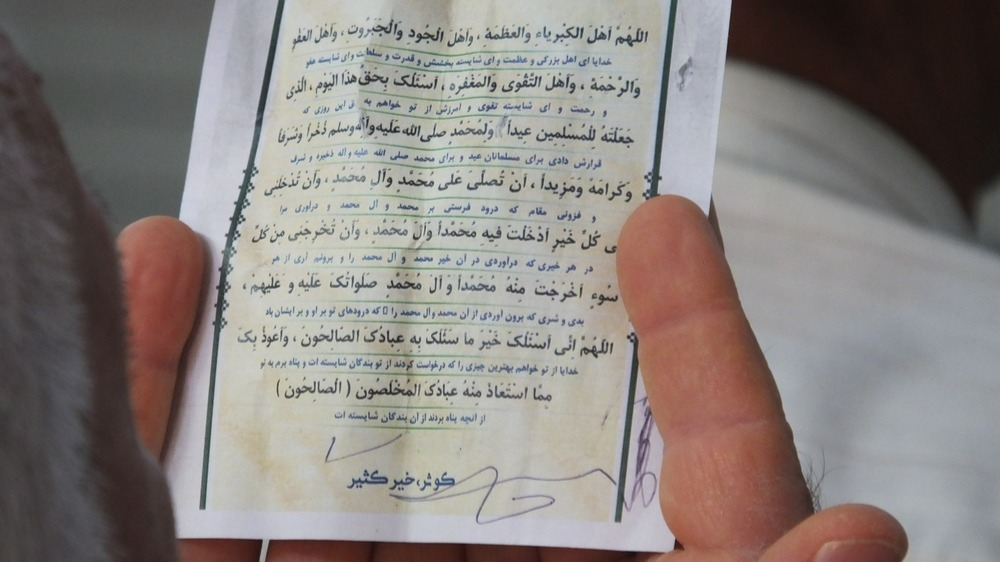 اللهُمَّ اَهْلَ الكِبْرِیاءِ وَالعَظَمَةِ ، وَاَهْلَ الجُودِ وَالْجَبَرُوتِ، وَاَهْلَ العَفْوِ
خدایا ای اهل بزرگی و عظمت و ای شایسته بخشش و قدرت و سلطنت و ای شایسته عفو
وَالرَّحْمَةِ ، وَاَهْلَ التَّقْوَی وَالْمَغْفِرِهِ ، اَسْئَلُکَ بِحَقِّ هَذَا الیَومِ، الَّذِی
و رحمت و ای شایسته تقوی و آمرزش از تو خواهم به ق این روزی که
جَعَلْتَهُ لِلْمُسْلِمِینَ عِیداً وَلِمُحَمَّدٍ صلی الله علیه وآله وسلم ذُخْراً وَشَرَفاً
قرارش دادی برای مسلمانان عید و برای محمد صلی الله علیه و آله ذخیره و شرف
وَکَرامَة وَمَزِیداً ، اَنْ تُصَلِّیَ عَلی مُحَمَّدٍ وَآلِ مُحَمَّدٍ، وَاَنْ تُدْخِلَنِی
و فزونی مقام که درود فرستی بر محمد و آل محمد و درآوری مرا
ی کُلِّ خَیْرٍ اَدْخَلْتَ فِیهِ مُحَمَّداً وَآلَ مُحَمَّدٍ، وَاَنْ تُخْرِجَنِی مِنْ کُلِّ
در هر خیری که درآوردی در آن خیر محمد و آل محمد را و برونم آری از هر
سُوءٍ اَخْرَجْتَ مِنْهُ مُحَمَّداً وَ آلَ مُحَمَّدٍ صَلَواتُکَ عَلَیْهِ وَ عَلَیْهِمْ ،
بدی و شری که برون آوردی از آن محمد وآل محمد را که درودهای تو بر او و بر ایشان باد
اللهُمَّ اِنِّی اَسْئَلُکَ خَیْرَ ما سَئَلَکَ بِهِ عِبادُکَ الصالِحُونَ ، وَاَعُوذُ بِکَ
خدایا از تو خواهم بهترین چیزی را که درخواست کردند از تو بندگان شایسته ات و پناه برم به تو
مِمَّا اسْتَعاذَ مِنْهُ عِبادُکَ المُخْلَصُونَ ( الْصَالِحُونَ )
از آنچه پناه بردند از آن بندگان شایسته ات
کوثر، خیر کثیر